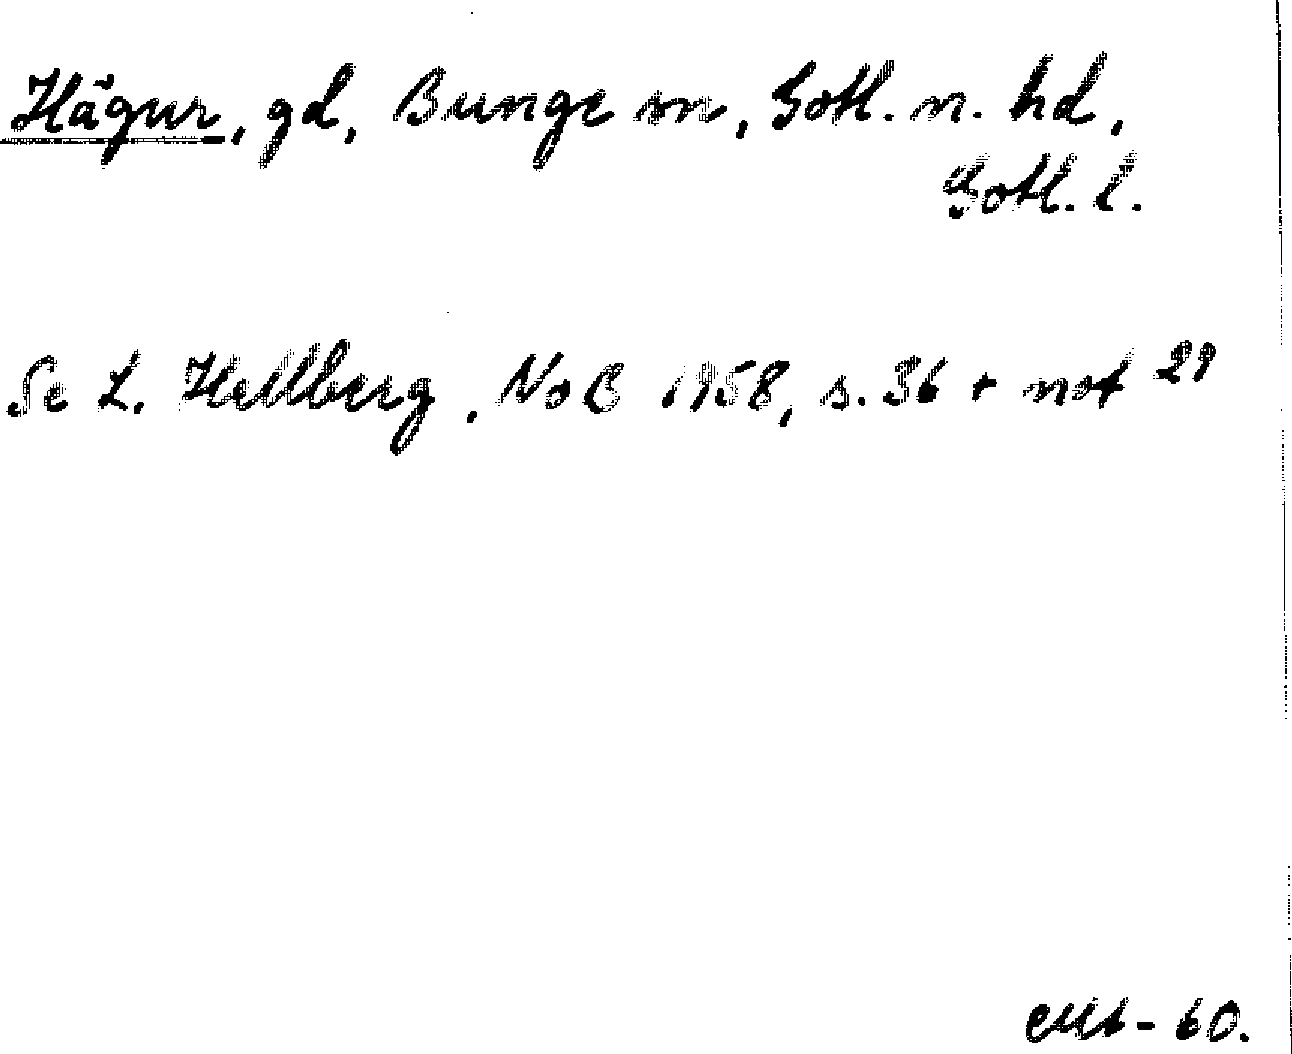 Hägur, gd, Bunge sn, Gotl. n. hd,
Gotl. l.
Se L. Hellberg, NoB 1958, s. 36 + not 29
- 60.